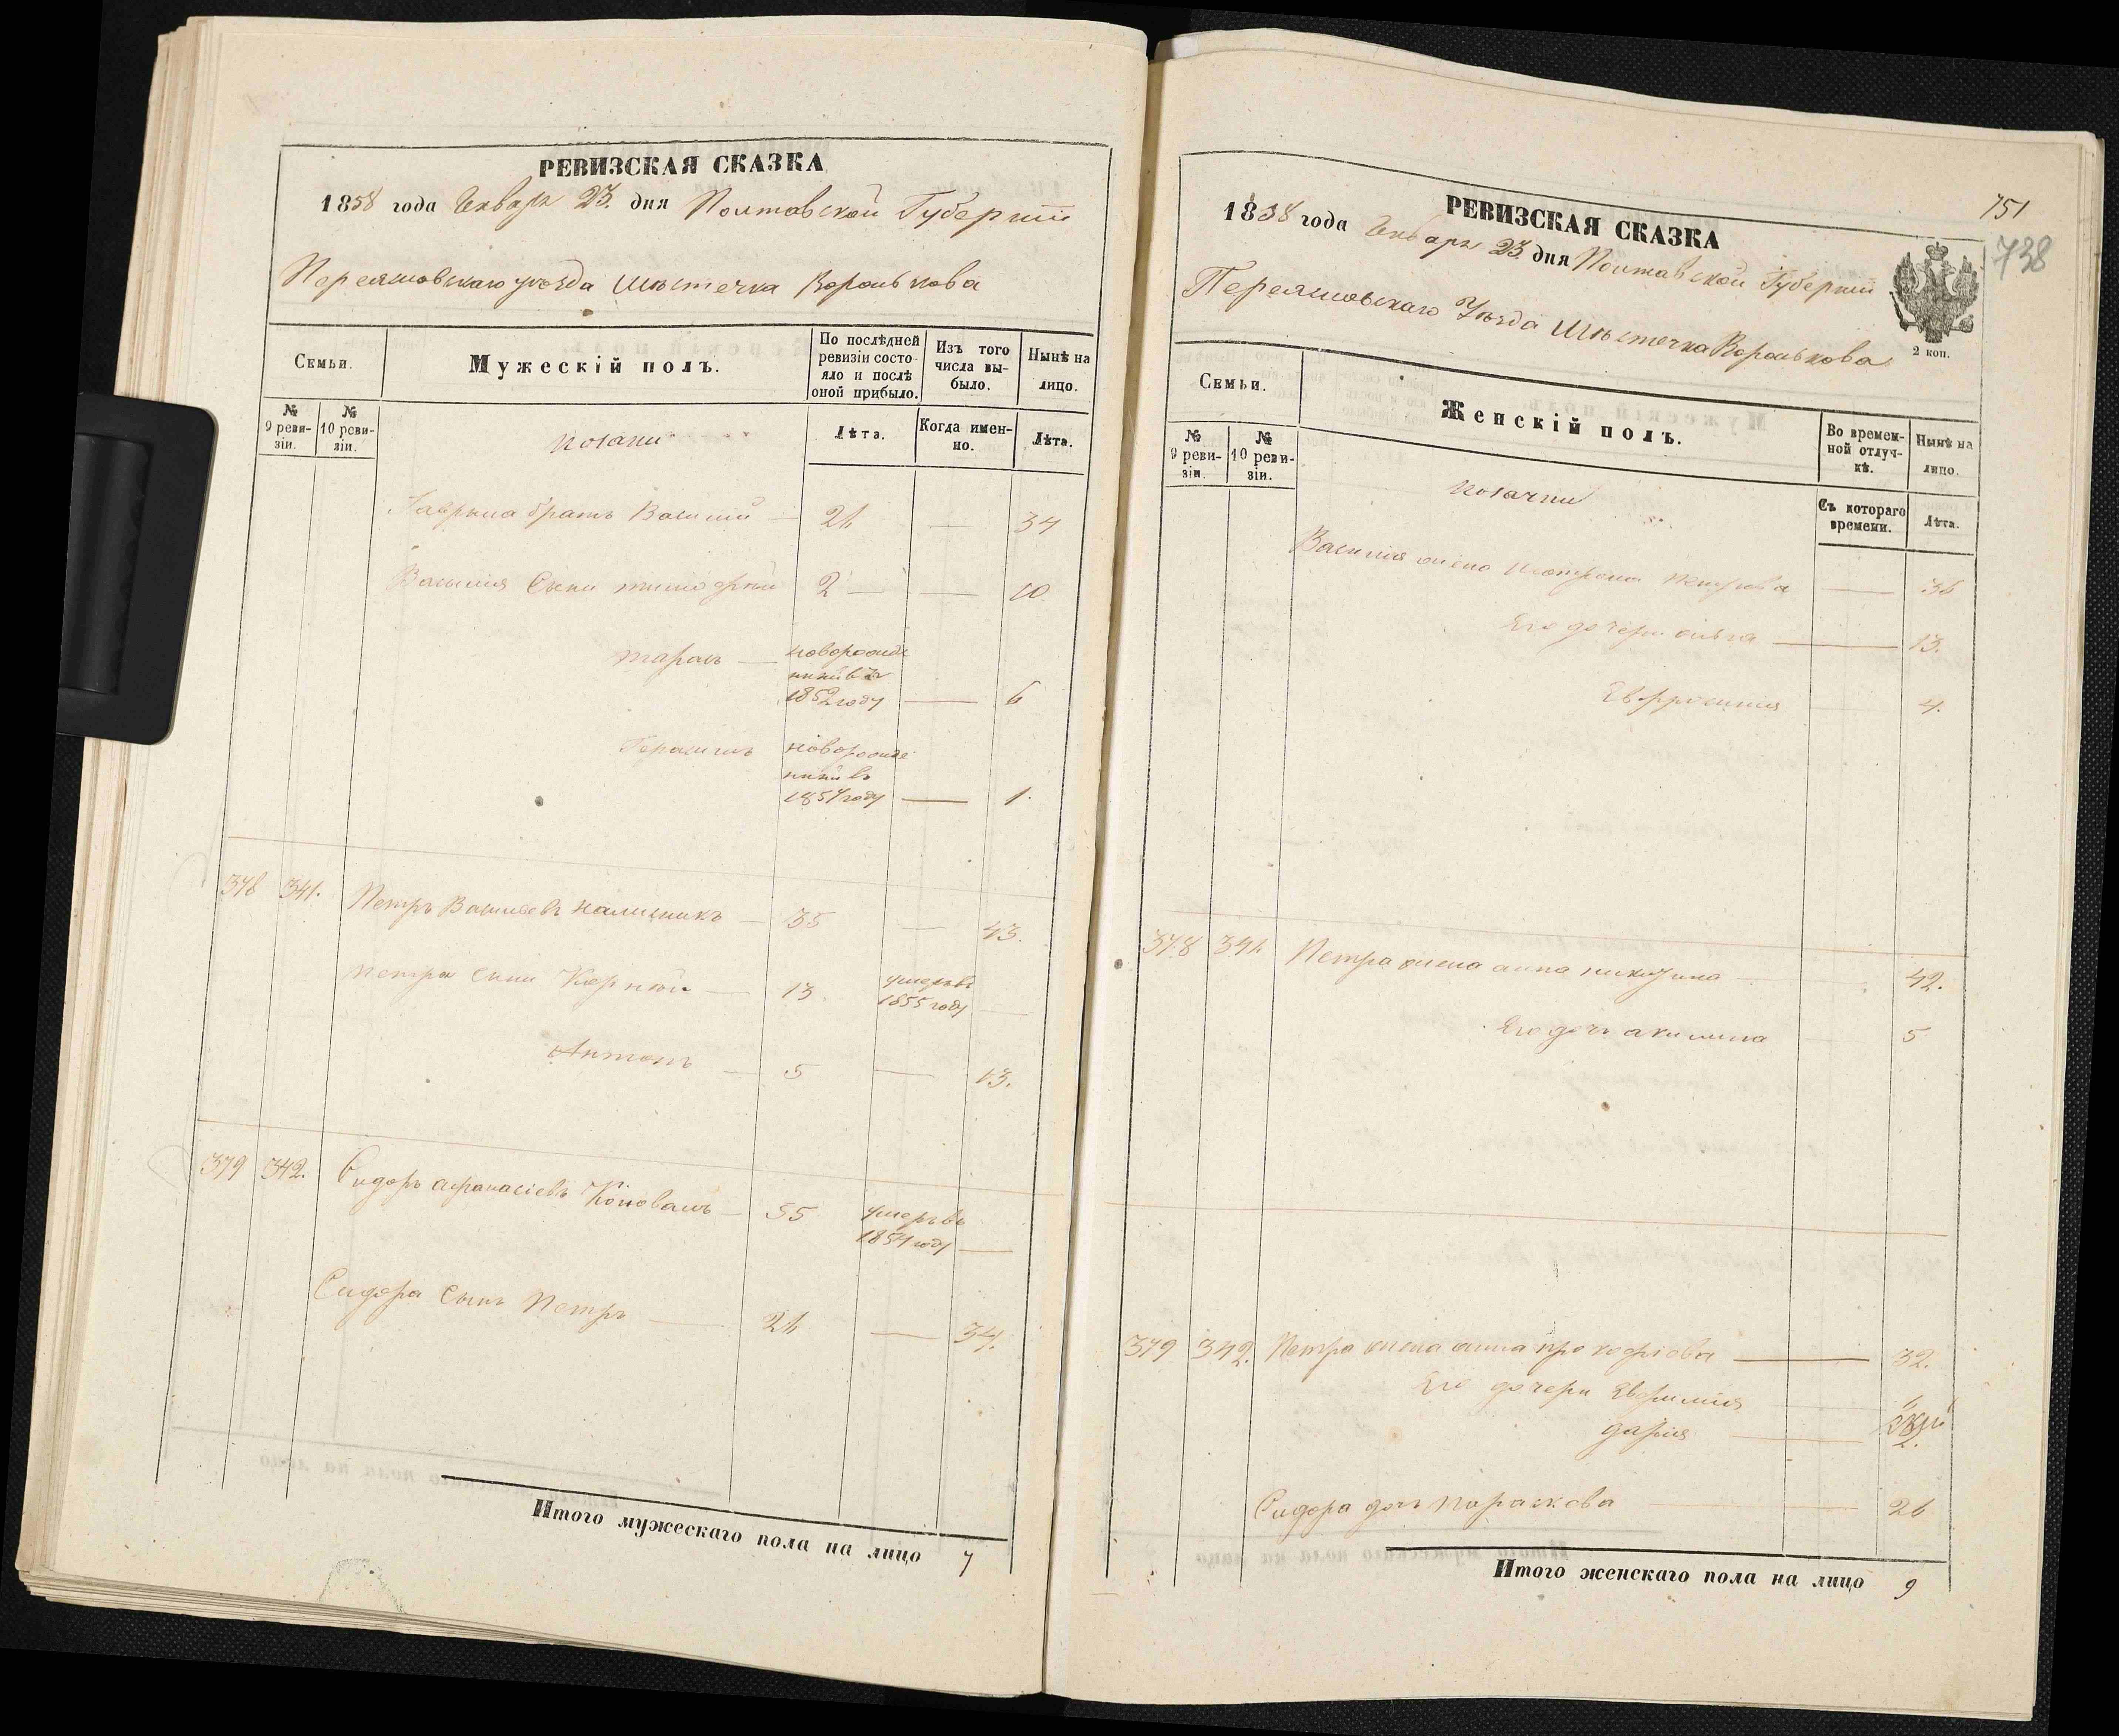 РЕВИЗСКАЯ СКАЗКА
1858 года Января 23. дня Полтавской Губернии
Переяславскаго уезда Местечка Воронькова
Семьи.
Мужескій полъ.
По послѣдней ревизіи состояло и послѣ оной прибыло.
Изъ того числа выбыло.
Нынѣ на лицо.
№ 9 ревизіи.
№ 10 ревизіи.
Козаки
Лѣта.
Когда именно.
Лѣта.
Гаврыла братъ Василий — 26 — 34
Василия Сыни 2 — — 10
тарасъ — новорожде
ный въ
1852 году — 6
Герасимъ новорожде
ный въ
1857 году — 1.
378 341. Петръ Васильевъ Калишникъ — 35 — 43.
Петра сыни Корней — 13. умеръ въ
1855 году —
Антонъ — 5 — 13.
379 342. Сидоръ афанасіевъ Коновалъ — 55 умеръ въ
1854 году —
Сидора Сынъ Петръ — 26 — 34.
Итого мужескаго пола на лицо 7
751
738
РЕВИЗСКАЯ СКАЗКА
1858 года Января 23. дня Полтавской Губернии
Переяславскаго Уезда Местечка Воронькова
2 коп.
Семьи.
Женскій полъ.
Во временной отлучкѣ.
Нынѣ на лицо.
№ 9 ревизіи.
№ 10 ревизіи.
Козачки
Съ котораго времени.
Лѣта.
Василия жена Петрова — 36
Его дочери ольга — 13.
Евфросиния 4.
378 341. Петра жена анна никитина — 42.
Его дочь акилина 5
379 342. Петра жена анна прокофіева — 32.
Его дочери Евфимия
дария — 2.
Сидора дочь параскева — 26
Итого женскаго пола на лицо 9